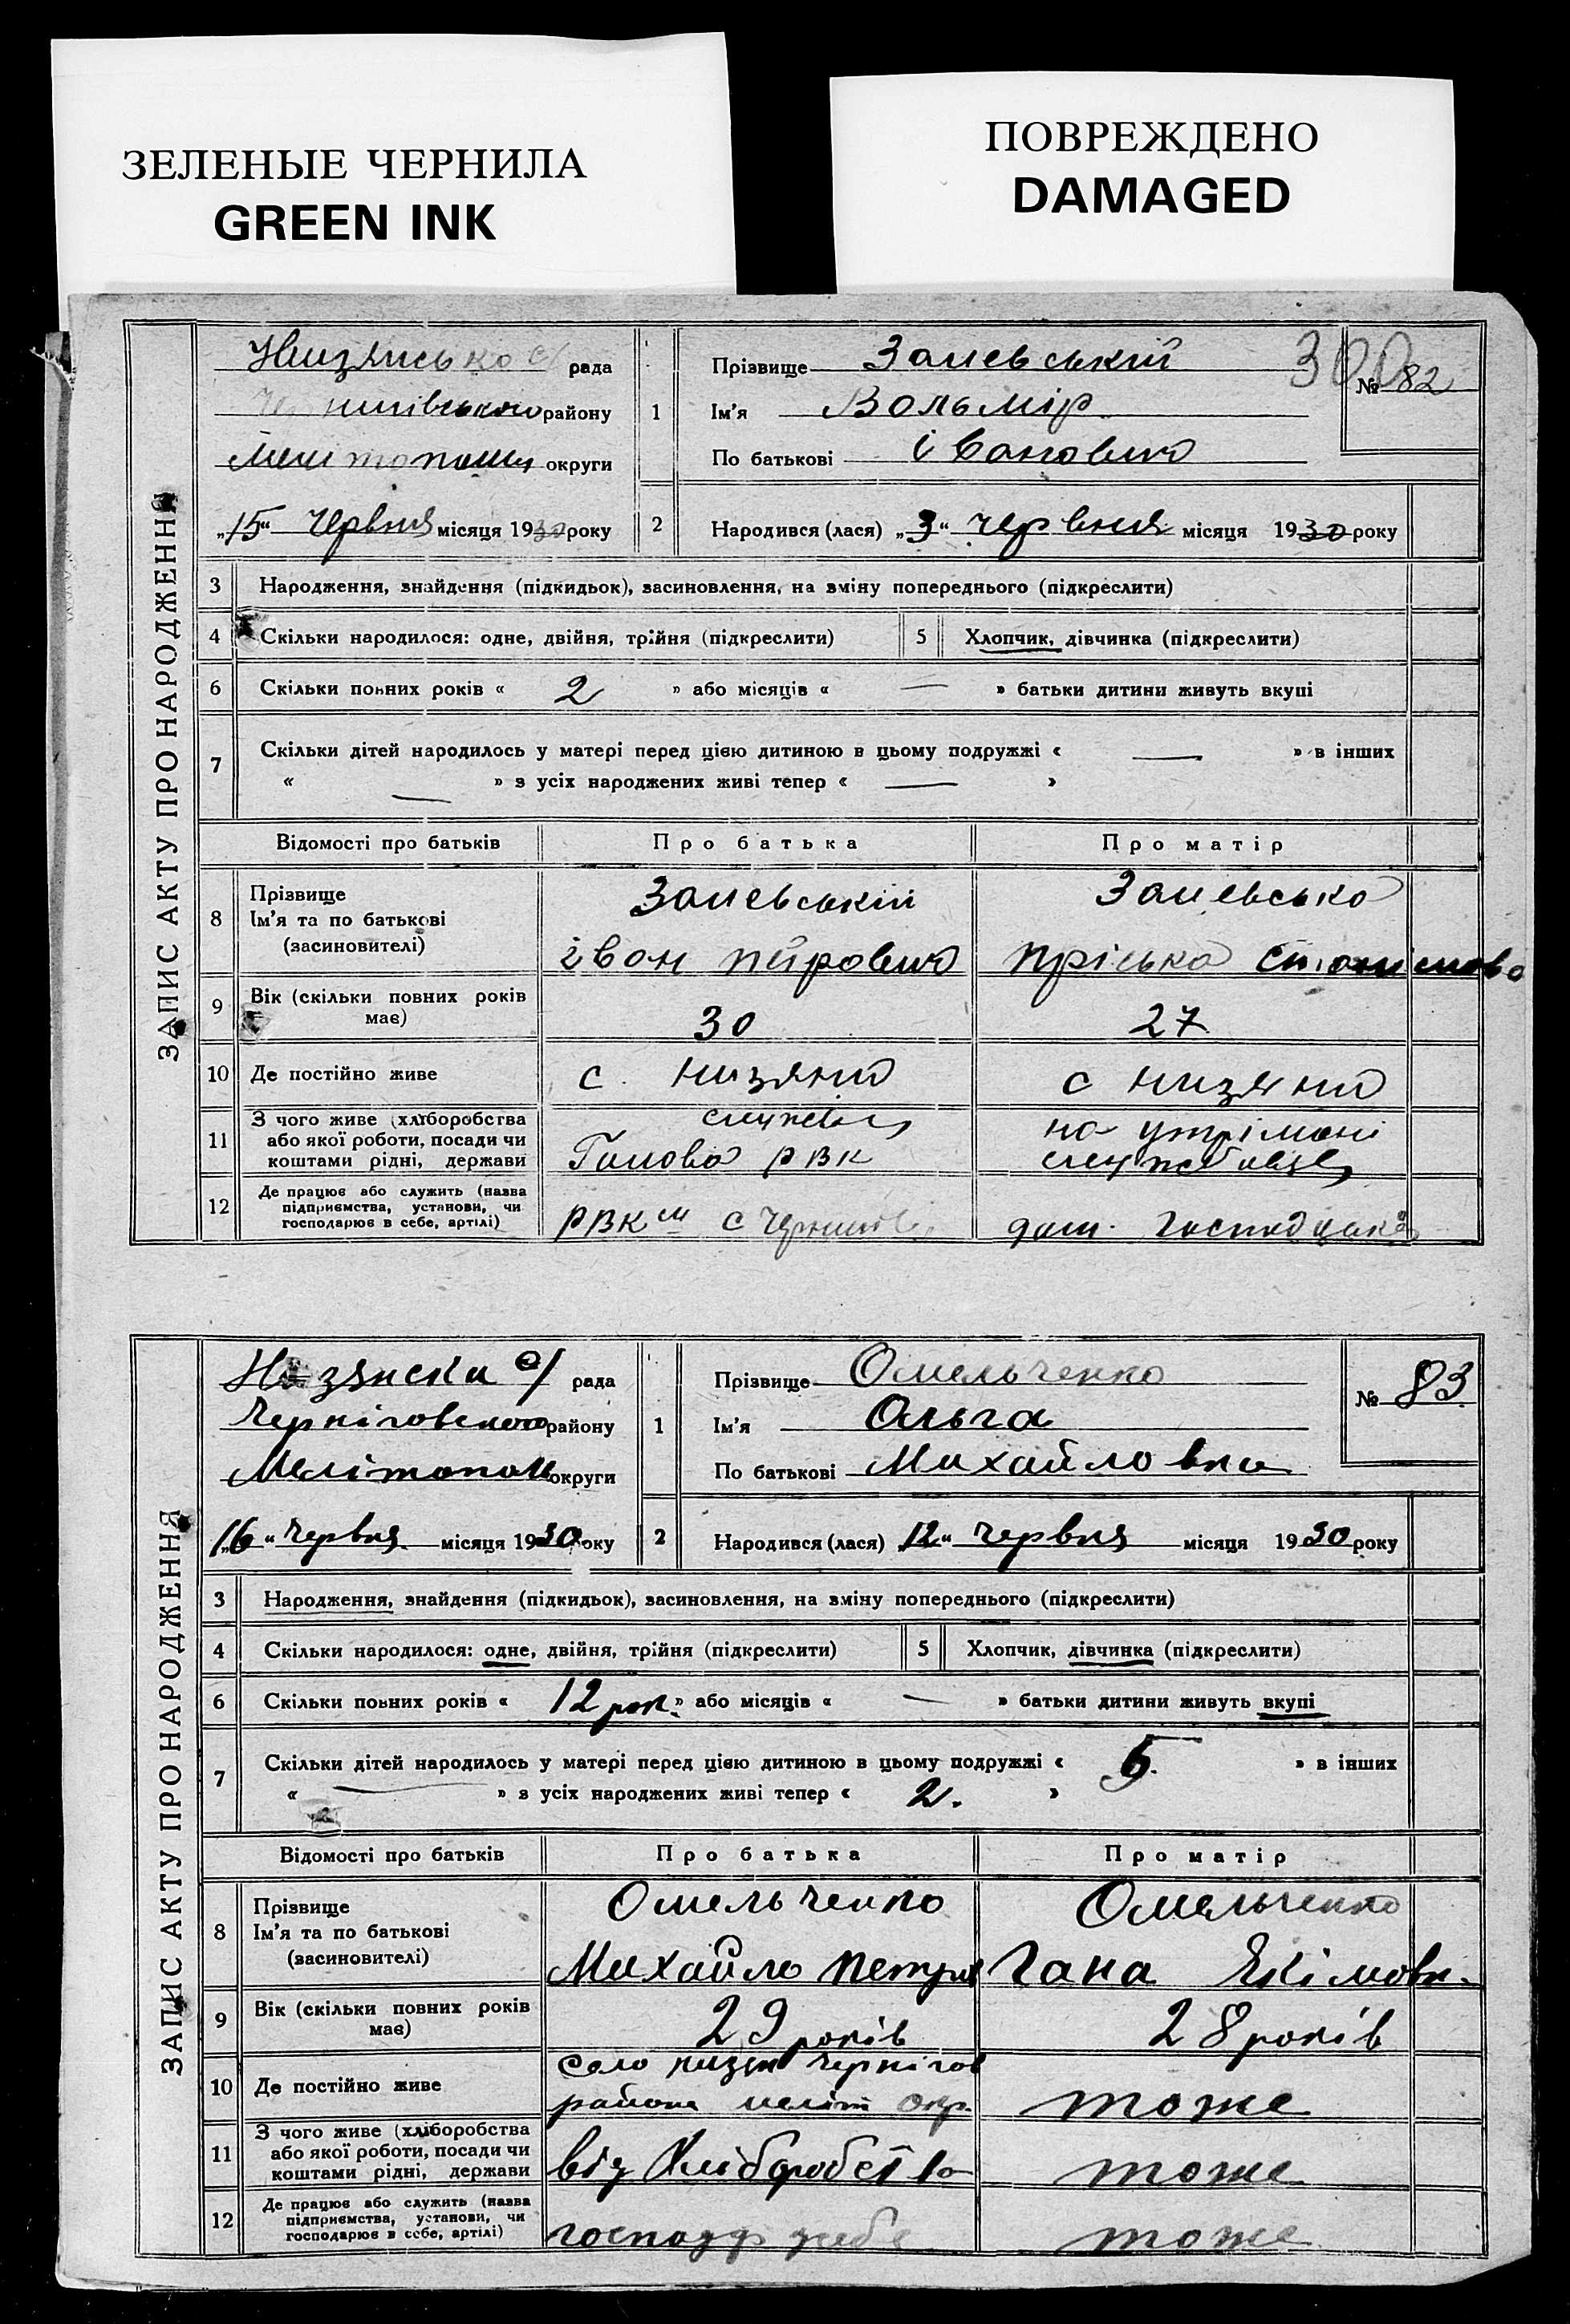 ЗЕЛЕНЫЕ ЧЕРНИЛА
GREEN INK
ПОВРЕЖДЕНО
DAMAGED
ЗАПИС АКТУ ПРО НАРОДЖЕННЯ
рада
району
округи
„15“ Червня місяця 1930 року
1
Прізвище
Ім'я
По батькові Іванович
№ 82
300
2
Народився (лася) „3“ червня місяця 1930 року
3 Народження, знайдення (підкидьок), засиновлення, на зміну попереднього (підкреслити)
4 Скільки народилося: одне, двійня, трійня (підкреслити) 5 Хлопчик, дівчинка (підкреслити)
6 Скільки повних років « 2 » або місяців « — » батьки дитини живуть вкупі
7 Скільки дітей народилось у матері перед цією дитиною в цьому подружжі « — » в інших
« — » з усіх народжених живі тепер « — »
Відомості про батьків Про батька Про матір
8 Прізвище
Ім'я та по батькові
(засиновителі)
Іван
Пріська
9 Вік (скільки повних років має) 30 27
10 Де постійно живе с. Низяни с Низяни
11 З чого живе (хліборобства
або якої роботи, посади чи
коштами рідні, держави
Голова РВК
на
12 Де працює або служить (назва
підприємства, установи, чи
господарює в себе, артілі)
РВК с
дом.
ЗАПИС АКТУ ПРО НАРОДЖЕННЯ
с/ рада
Черніговского району
Мелітопол округи
„16“ Червня місяця 1930 року
1
Прізвище Омельченко
Ім'я Ольга
По батькові Михайловна
№ 83
2
Народився (лася) „12“ Червня місяця 1930 року
3 Народження, знайдення (підкидьок), засиновлення, на зміну попереднього (підкреслити)
4 Скільки народилося: одне, двійня, трійня (підкреслити) 5 Хлопчик, дівчинка (підкреслити)
6 Скільки повних років « 12 рок. » або місяців « — » батьки дитини живуть вкупі
7 Скільки дітей народилось у матері перед цією дитиною в цьому подружжі « 5. » в інших
« — » з усіх народжених живі тепер « 2. »
Відомості про батьків Про батька Про матір
8 Прізвище
Ім'я та по батькові
(засиновителі)
Омельченко
Михайло
Омельченко
Гана Якімовн.
9 Вік (скільки повних років має) 29 років 28 років
10 Де постійно живе
село Низян Чернігов
района меліт окр.
тоже
11 З чого живе (хліборобства
або якої роботи, посади чи
коштами рідні, держави
від
тоже
12 Де працює або служить (назва
підприємства, установи, чи
господарює в себе, артілі)
тоже